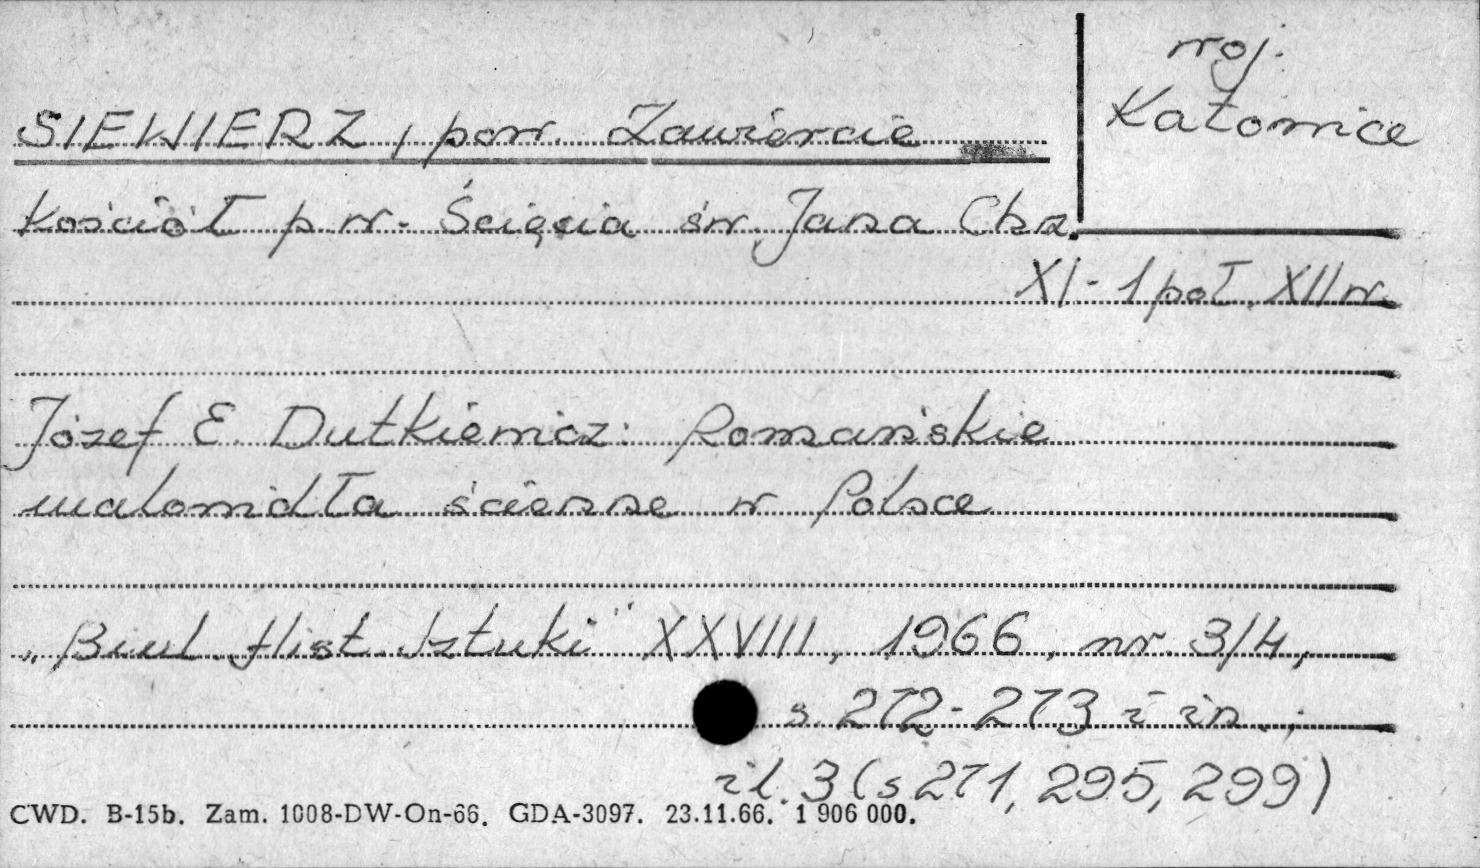 woj.
Katowice
SIEWIERZ, pow. Zawiercie
Kościół p w. Ścięcia św. Jana Chrz.
XI - 1 poł. XII w.
Józef E. Dutkiewicz: Romańskie
malowidła ścienne w Polsce
„Biul. Hist. Sztuki" XXVIII, 1966, nr. 3/4,
s. 272-273 i in.;
il. 3 (s 271, 295, 299)
CWD. B-15b. Zam. 1008-DW-On-66. GDA-3097. 23.11.66. 1 906 000.